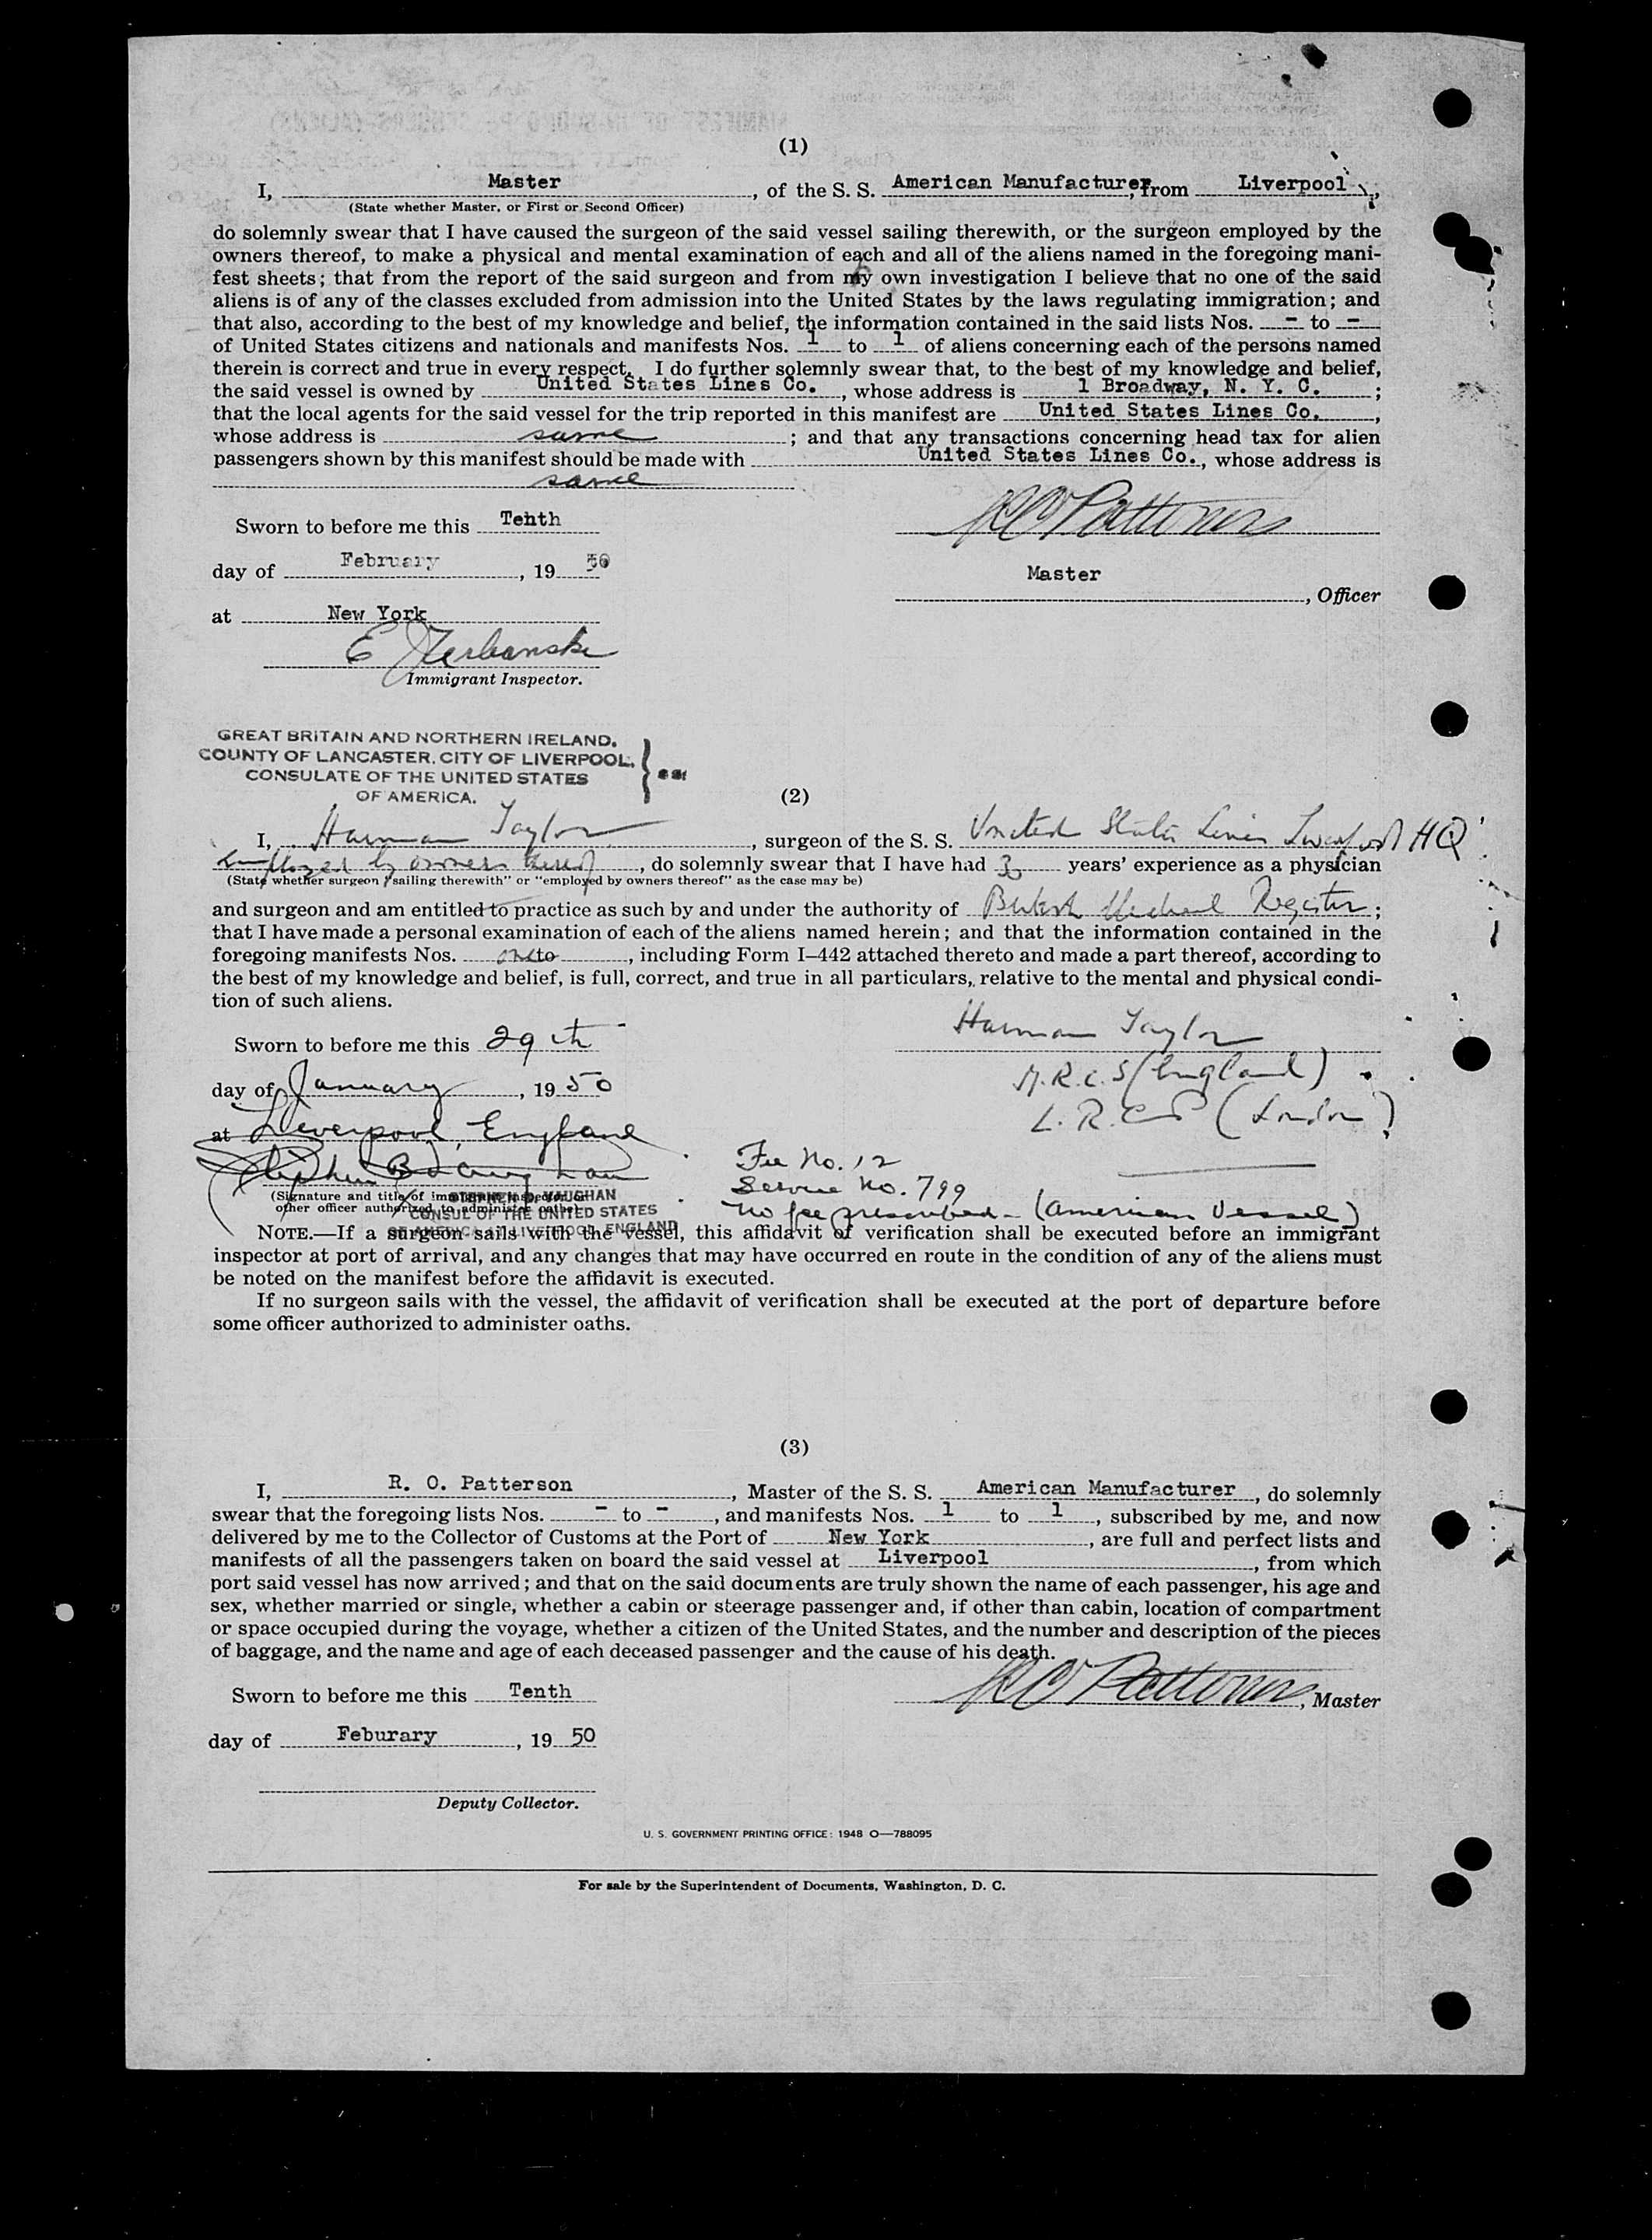 (1)
I, Master, of the S. S. American Manufacturer, from Liverpool,
(State whether Master, or First or Second Officer)
do solemnly swear that I have caused the surgeon of the said vessel sailing therewith, or the surgeon employed by the
owners thereof, to make a physical and mental examination of each and all of the aliens named in the foregoing mani-
fest sheets; that from the report of the said surgeon and from my own investigation I believe that no one of the said
aliens is of any of the classes excluded from admission into the United States by the laws regulating immigration; and
that also, according to the best of my knowledge and belief, the information contained in the said lists Nos. - to -
of United States citizens and nationals and manifests Nos. 1 to 1 of aliens concerning each of the persons named
therein is correct and true in every respect. I do further solemnly swear that, to the best of my knowledge and belief,
the said vessel is owned by United States Lines Co., whose address is 1 Broadway, N. Y. C. ;
that the local agents for the said vessel for the trip reported in this manifest are United States Lines Co.,
whose address is same ; and that any transactions concerning head tax for alien
passengers shown by this manifest should be made with United States Lines Co., whose address is
same
Sworn to before me this Tenth
R O Patterson
day of February, 19 50
Master, Officer
at New York
E
Immigrant Inspector.
GREAT BRITAIN AND NORTHERN IRELAND,
COUNTY OF LANCASTER, CITY OF LIVERPOOL,
CONSULATE OF THE UNITED STATES
OF AMERICA.
} ss
(2)
I, Harman Taylor, surgeon of the S. S. United States Lines Liverpool HQ
Employed by owners thereof, do solemnly swear that I have had years' experience as a physician
(State whether surgeon "sailing therewith" or "employed by owners thereof" as the case may be)
and surgeon and am entitled to practice as such by and under the authority of British Medical Register ;
that I have made a personal examination of each of the aliens named herein; and that the information contained in the
foregoing manifests Nos. one to , including Form I–442 attached thereto and made a part thereof, according to
the best of my knowledge and belief, is full, correct, and true in all particulars, relative to the mental and physical condi-
tion of such aliens.
Harman Taylor
Sworn to before me this 29th
M.R.C.S (England)
day of January, 19 50
L.R.C.P (London)
at Liverpool, England
Stephen B Vaughan
Fee No. 12
Service No. 799
(Signature and title of immigrant inspector or
other officer authorized to administer oaths)
STEPHEN B. VAUGHAN
CONSUL OF THE UNITED STATES
OF AMERICA AT LIVERPOOL, ENGLAND
No fee prescribed - (American Vessel)
NOTE.—If a surgeon sails with the vessel, this affidavit of verification shall be executed before an immigrant
inspector at port of arrival, and any changes that may have occurred en route in the condition of any of the aliens must
be noted on the manifest before the affidavit is executed.
If no surgeon sails with the vessel, the affidavit of verification shall be executed at the port of departure before
some officer authorized to administer oaths.
(3)
I, R. O. Patterson, Master of the S. S. American Manufacturer, do solemnly
swear that the foregoing lists Nos. - to -, and manifests Nos. 1 to 1, subscribed by me, and now
delivered by me to the Collector of Customs at the Port of New York, are full and perfect lists and
manifests of all the passengers taken on board the said vessel at Liverpool, from which
port said vessel has now arrived; and that on the said documents are truly shown the name of each passenger, his age and
sex, whether married or single, whether a cabin or steerage passenger and, if other than cabin, location of compartment
or space occupied during the voyage, whether a citizen of the United States, and the number and description of the pieces
of baggage, and the name and age of each deceased passenger and the cause of his death.
Sworn to before me this Tenth
R O Patterson, Master
day of Feburary, 19 50
Deputy Collector.
U. S. GOVERNMENT PRINTING OFFICE: 1948 O—788095
For sale by the Superintendent of Documents, Washington, D. C.